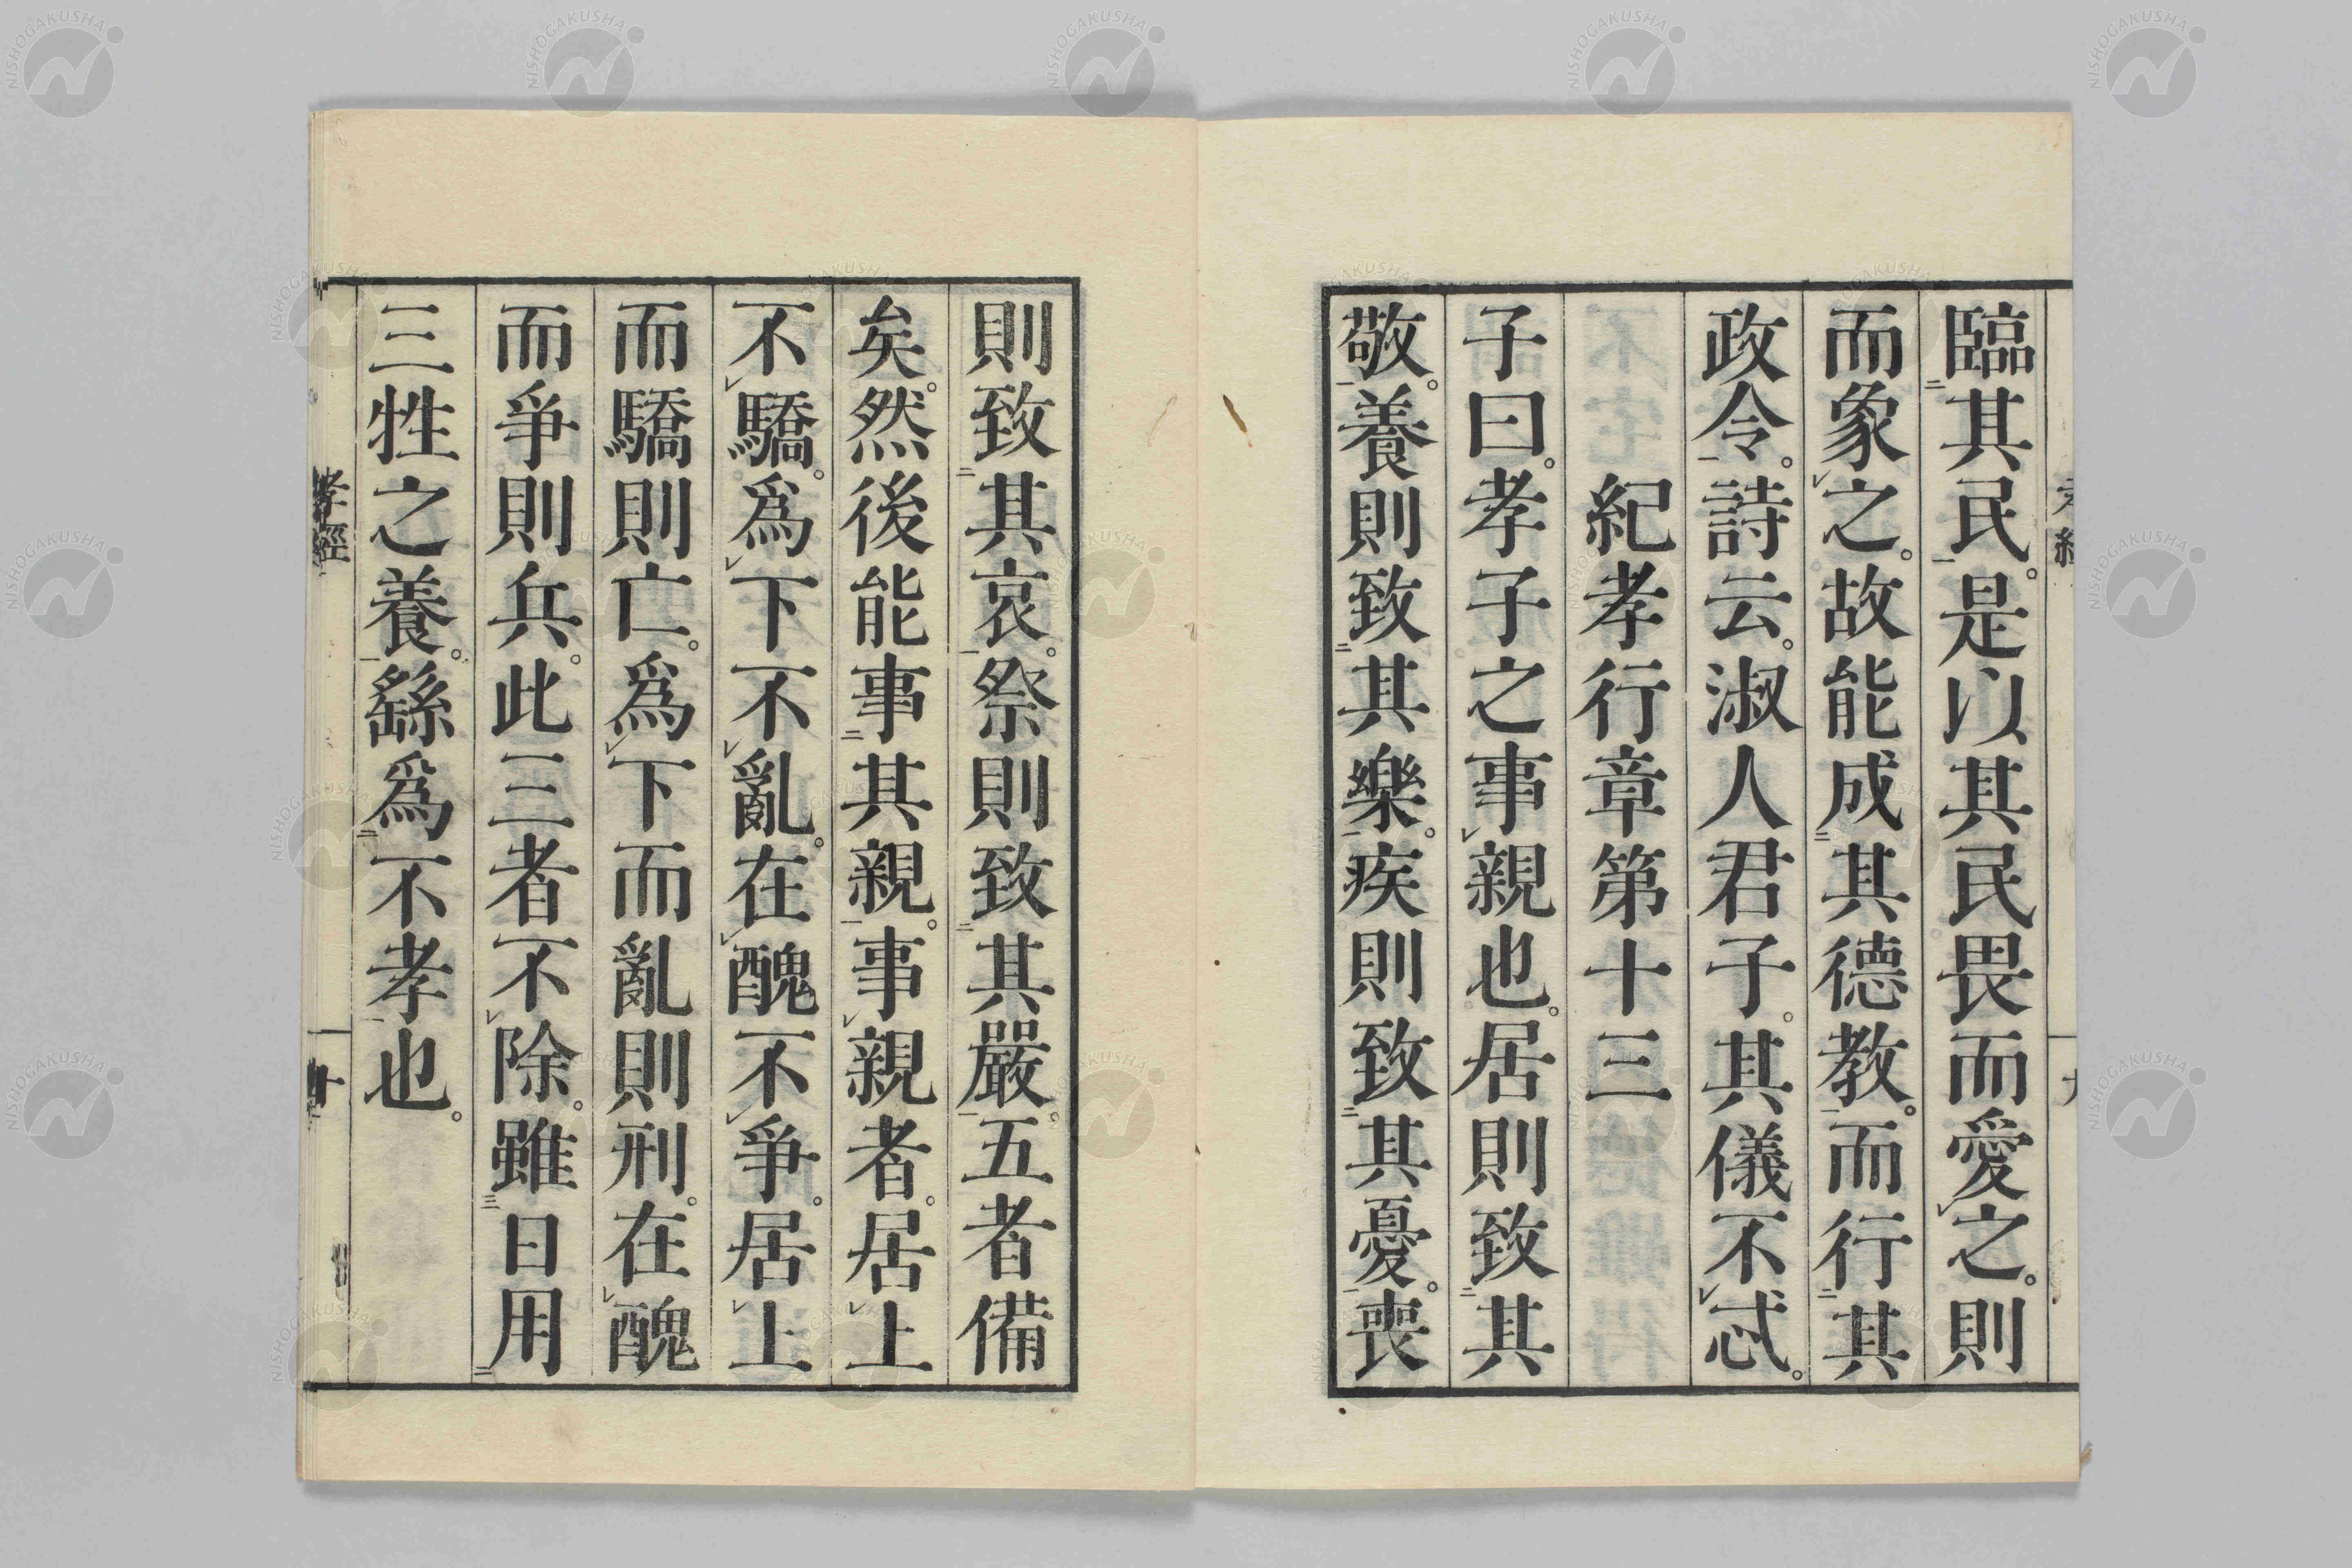 臨其民。是以其民畏而愛之。則
而象之。故能成其德教。而行其
政令。詩云。淑人君子。其儀不忒。
紀孝行章第十三
子曰。孝子之事親也。居則致其
敬。養則致其樂。疾則致其憂。喪
則致其哀。祭則致其嚴。五者備
矣。然後能事其親。事親者。居上
不驕。爲下不亂。在醜不爭。居上
而驕則亡。爲下而亂則刑。在醜
而爭則兵。此三者不除。雖日用
三牲之養。繇爲不孝也。
孝經
十
NISHOGAKUSHA